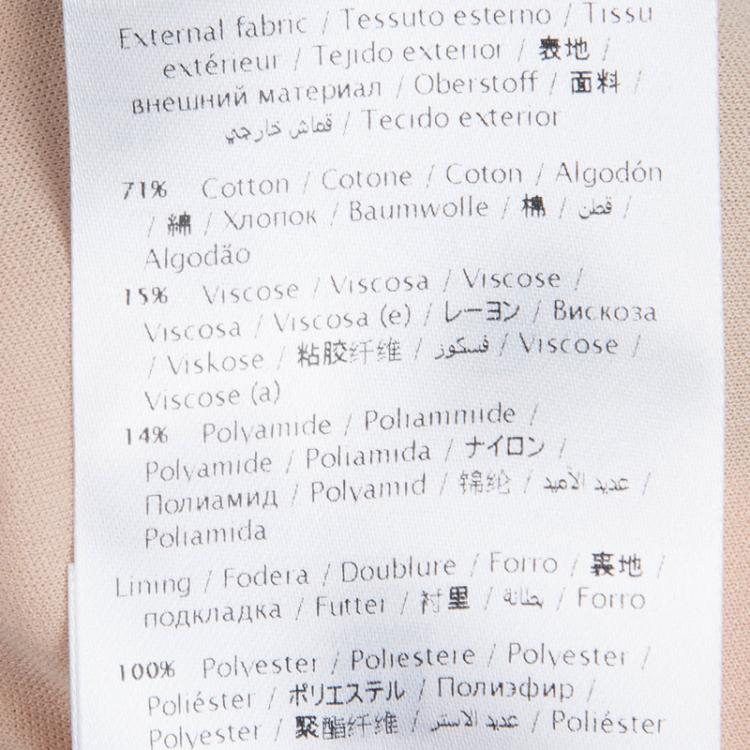 External fabric / Tessuto esterno / Tissu
extérieur / Tejido exterior / 表地 /
внешний материал / Oberstoff / 面料 /
قماش خارجي / Tecido exterior
71% Cotton / Cotone / Coton / Algodón
/ 綿 / Хлопок / Baumwolle / 棉 / قطن /
Algodão
15% Viscose / Viscosa / Viscose /
Viscosa / Viscosa (e) / レーヨン / Вискоза
/ Viskose / 粘胶纤维 / فسكوز / Viscose /
Viscose (a)
14% Polyamide / Poliammide /
Polyamide / Poliamida / ナイロン /
Полиамид / Polyamid / 锦纶 / عديد الأميد /
Poliamida
Lining / Fodera / Doublure / Forro / 裏地 /
подкладка / Futter / 衬里 / بطانة / Forro
100% Polyester / Poliestere / Polyester /
Poliéster / ポリエステル / Полиэфир /
Polyester / 聚酯纤维 / عديد الاستر / Poliéster